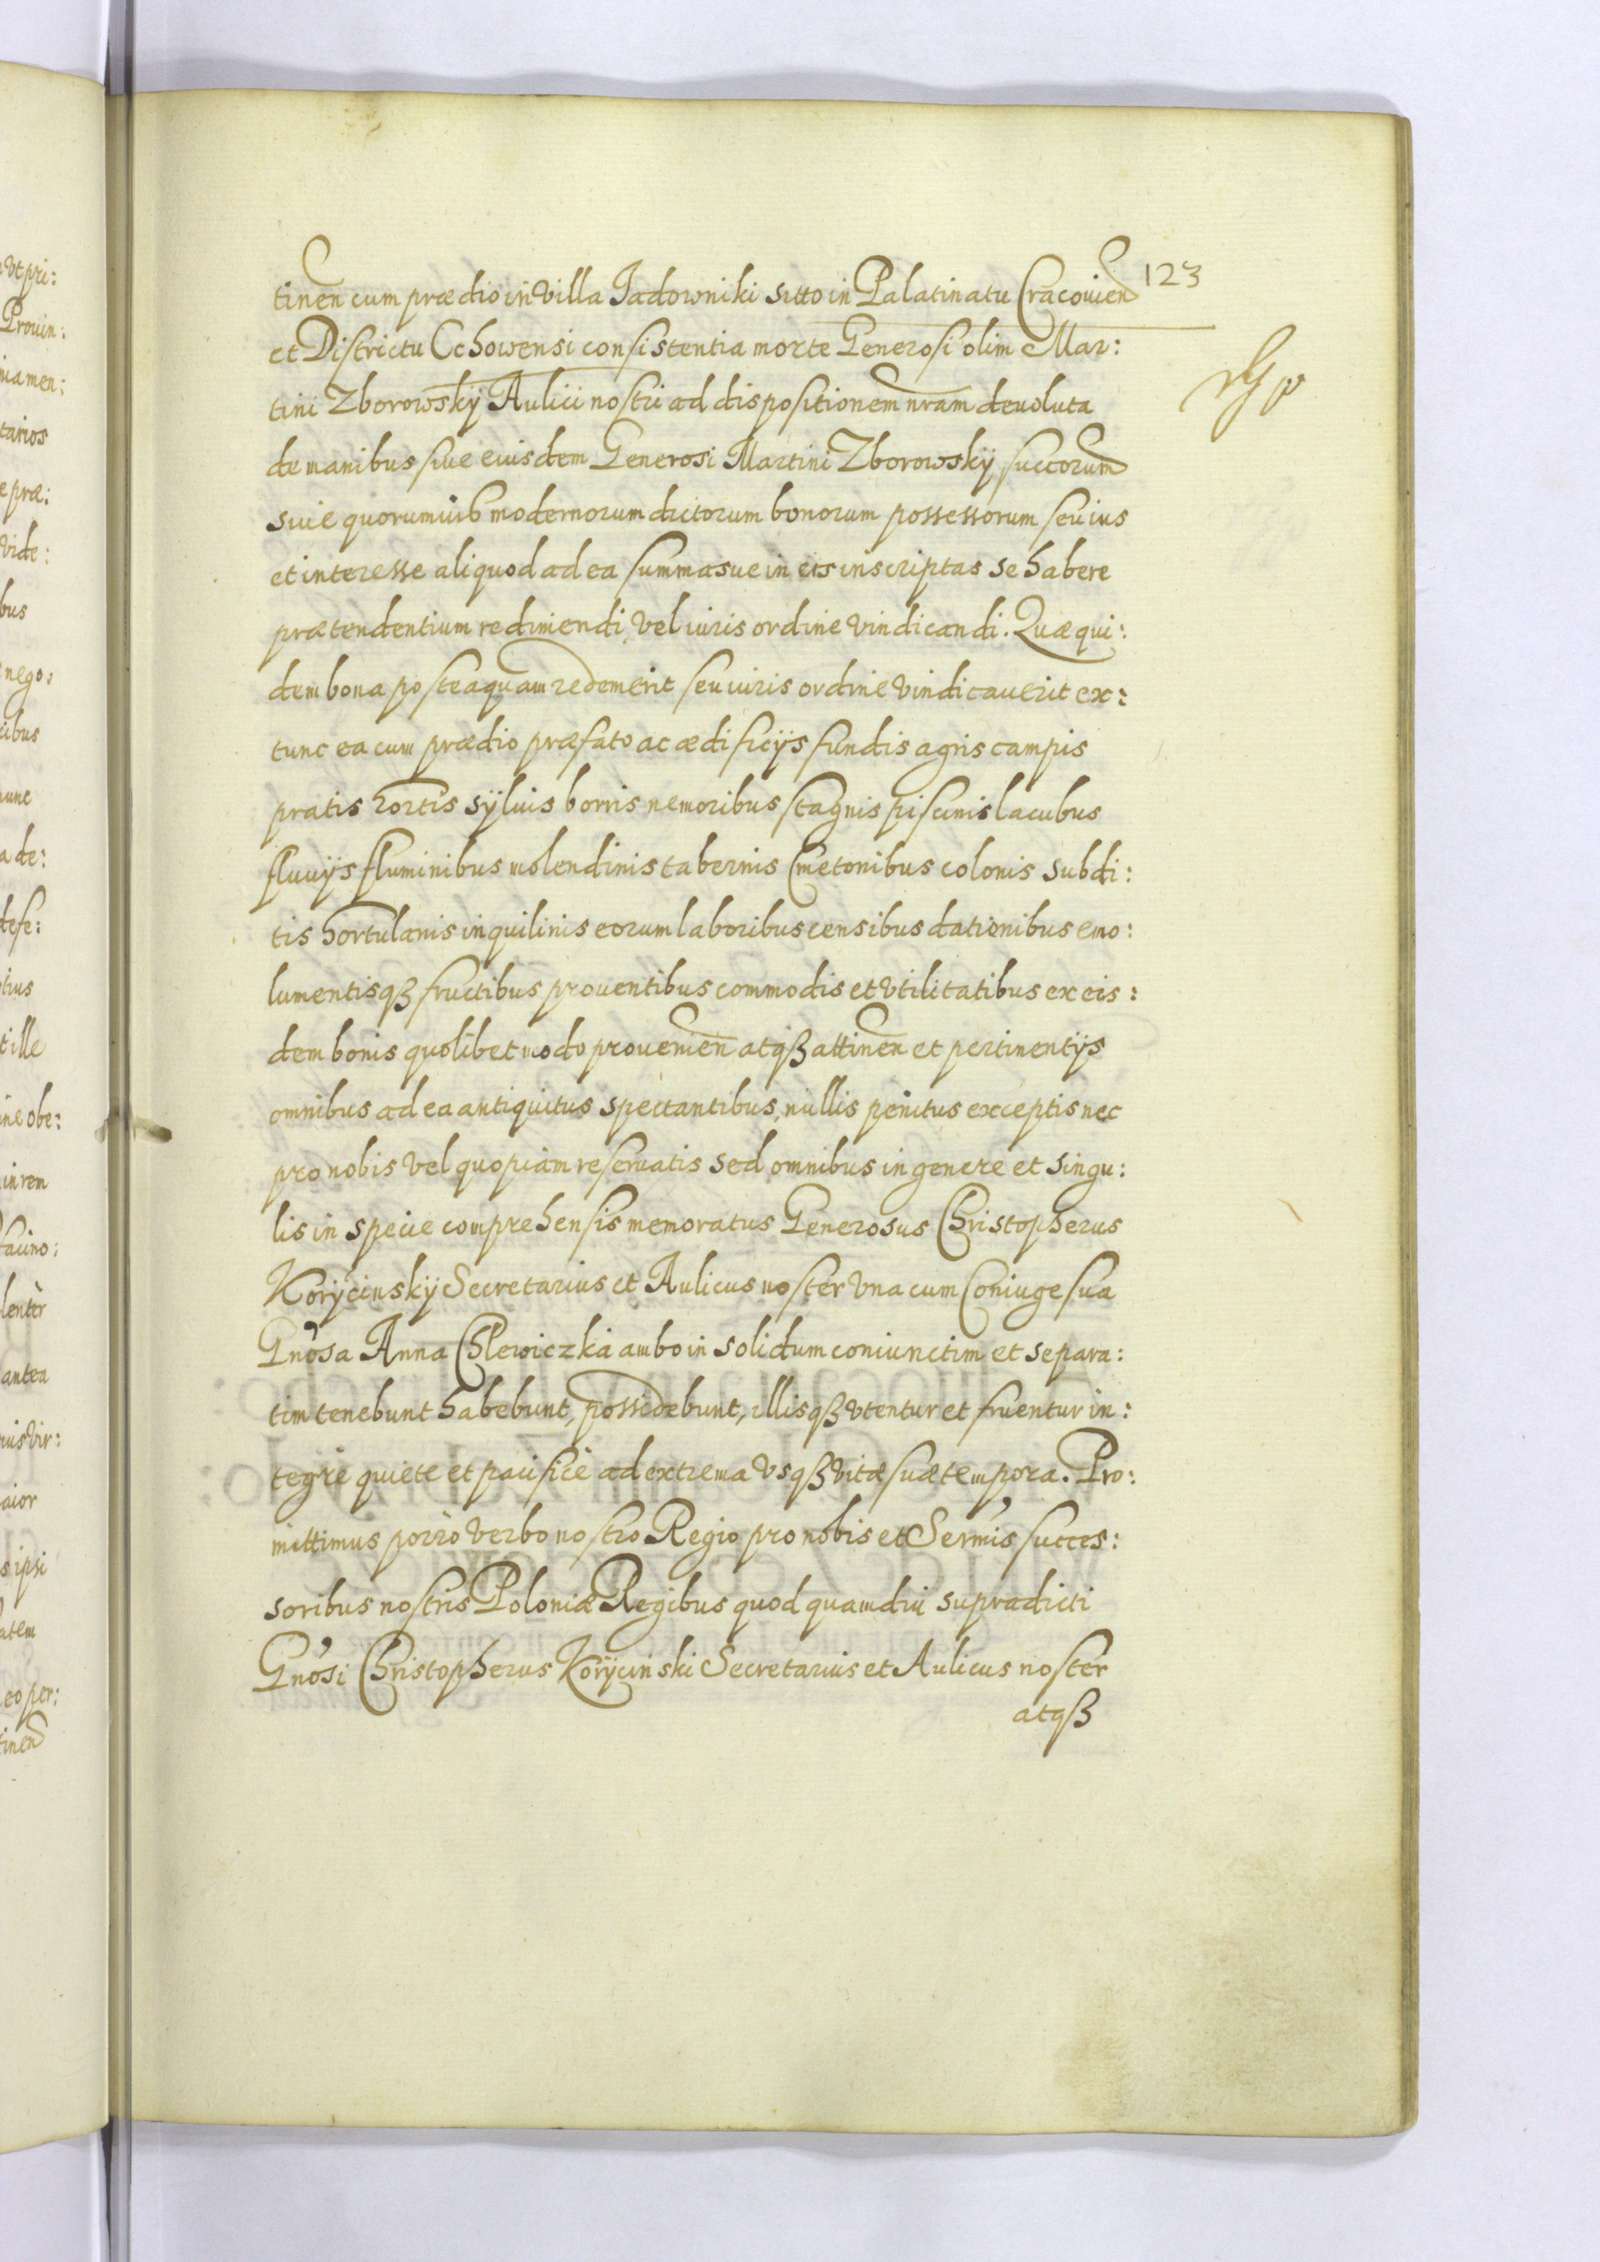 123
tinen cum prædio in Villa Jadowniki sitto in Palatinatu Cracouien
et Districtu Cchowensi consistentia morte Generosi olim Mar:
tini Zborowskÿ Aulici nostri ad dispositionem nram deuoluta
de manibus siue eiusdem Generosi Martini Zborowskÿ succorum
siue quorumuis modernorum dictorum bonorum possessorum seu ius
et interesse aliquod ad ea summasue in eis inscriptas se habere
prætendentium redimendi, Vel iuris ordine Vindicandi. Quæ qui:
dem bona posteaquam redemerit seu iuris ordine Vindicauerit ex:
tunc ea cum prædio præfato ac ædificÿs fundis agris campis
pratis hortis sÿluis borris nemoribus stagnis piscinis lacubus
fluuÿs fluminibus molendinis tabernis Cmetonibus colonis subdi:
tis hortulanis inquilinis eorum laboribus censibus dationibus emo:
lumentisqß fructibus prouentibus commodis et Vtilitatibus ex eis:
dem bonis quolibet modo prouenien atqß attinen et pertinentÿs
omnibus ad ea antiquitus spectantibus, nullis penitus exceptis nec
pro nobis Vel quopiam reseruatis sed omnibus in genere et singu:
lis in specie comprehensis memoratus Generosus Christopherus
Korÿcinskÿ Secretarius et Aulicus noster Vna cum Coniuge sua
Gnosa Anna Chlewiczka ambo in solidum coniunctim et separa:
tim tenebunt habebunt, possidebunt, illisqß Vtentur et fruentur in:
tegrè quietè et pacificè ad extrema Vsqß Vitæ suæ tempora. Pro:
mittimus porrò Verbo nostro Regio pro nobis et Sermis succes:
soribus nostris Poloniæ Regibus quod quamdiu supradicti
Gnosi Christopherus Korÿcinski Secretarius et Aulicus noster
atqß